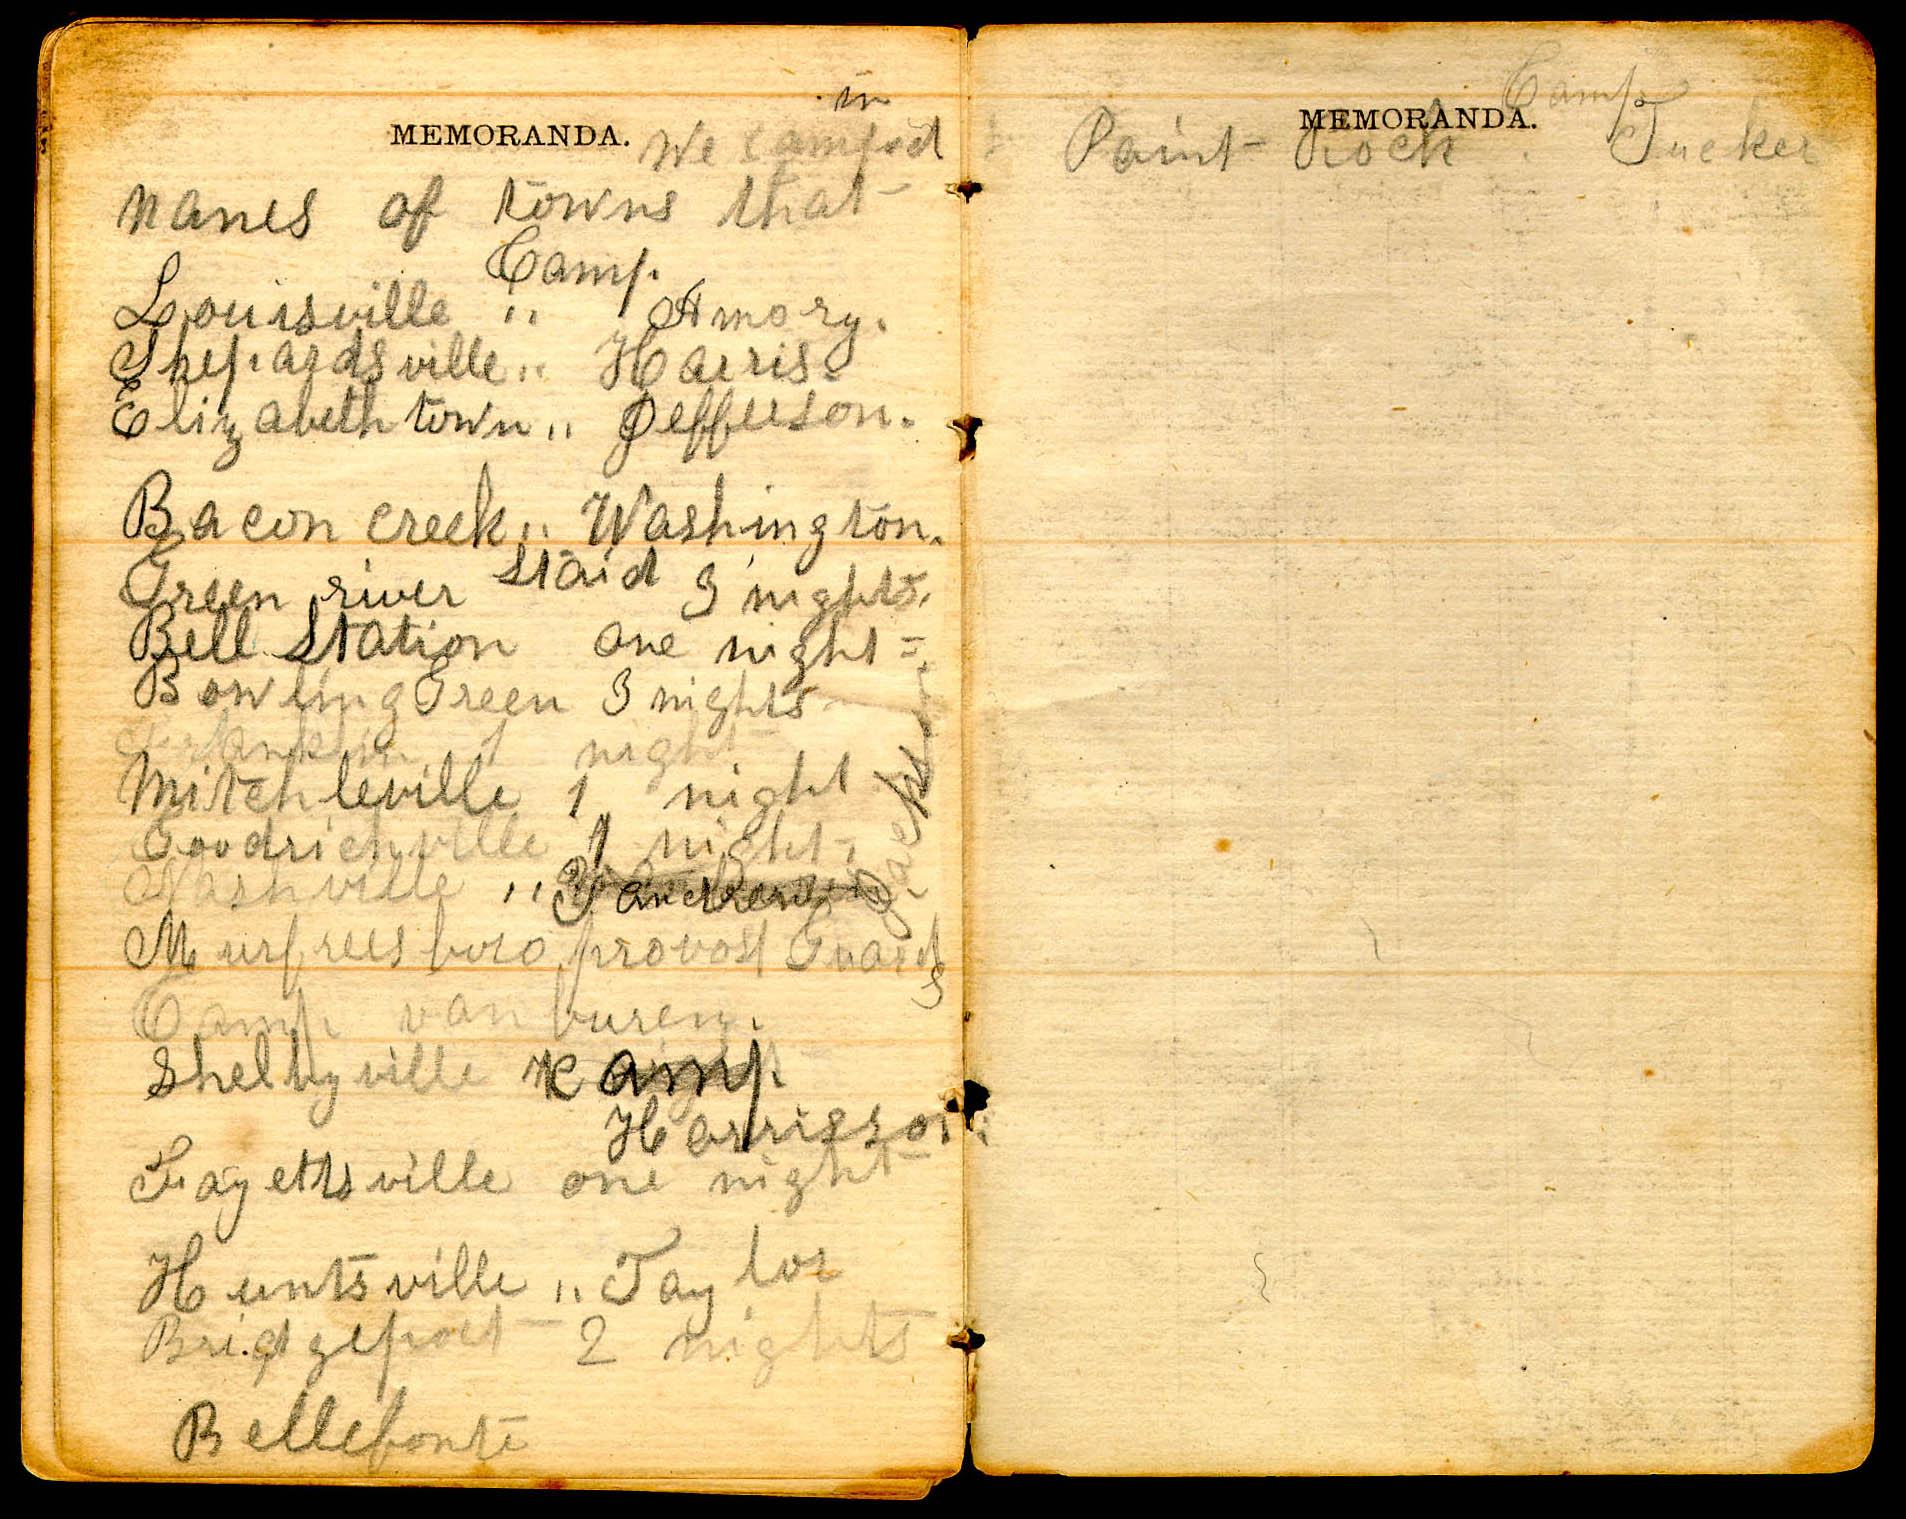 in
MEMORANDA. We camped
Names of towns that
Camp.
Louisville " Amory.
Shepardsville " Harris.
Elizabethtown " Jefferson.
Bacon creek " Washington.
Green river staid 3 nights.
Bell Station one night
Bowling Green 3 nights
Franklin 1 night
Mitchleville 1 night
Goodrichville 1 night.
Nashville "
Jackson
Murfreesboro provost Guards
Camp van buren.
Shelbyville Kamp.
Harrisson
Fayettsville one night
Huntsville " Taylor
Bridgeport 2 nights
Bellefonte
Camp
MEMORANDA.
Paint Rock . Tucker